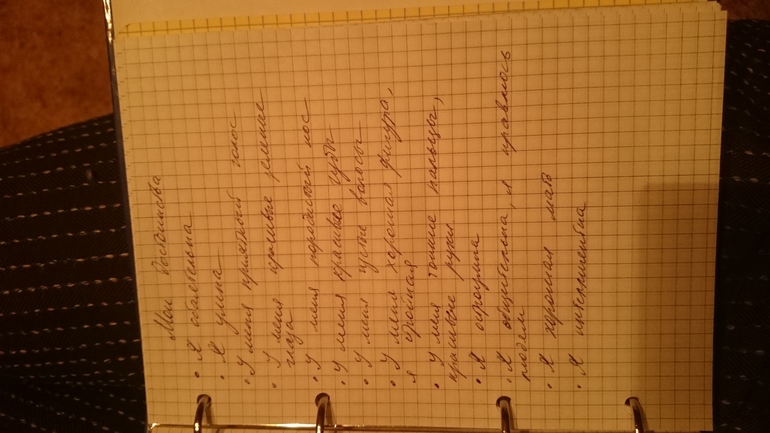 Мои достоинства
• Я обаятельна
• Я умна
• У меня приятный голос
• У меня красивые зеленые
глаза
• У меня породистый нос
• У меня красивые губы
• У меня густые волосы
• У меня хорошая фигура,
я стройная
• У меня тонкие пальцы,
красивые руки
• Я остроумна
• Я общительна, я нравлюсь
людям
• Я хорошая мать
• Я интеллигентна